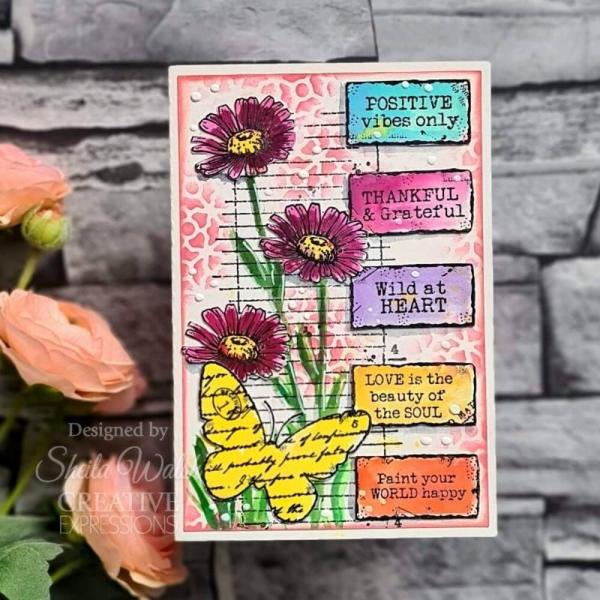 POSITIVE
vibes only
THANKFUL
& Grateful
Wild at
HEART
4
LOVE is the
beauty of
the SOUL
Paint your
WORLD happy
4
Designed by
Sheila
CREATIVE
EXPRESSIONS